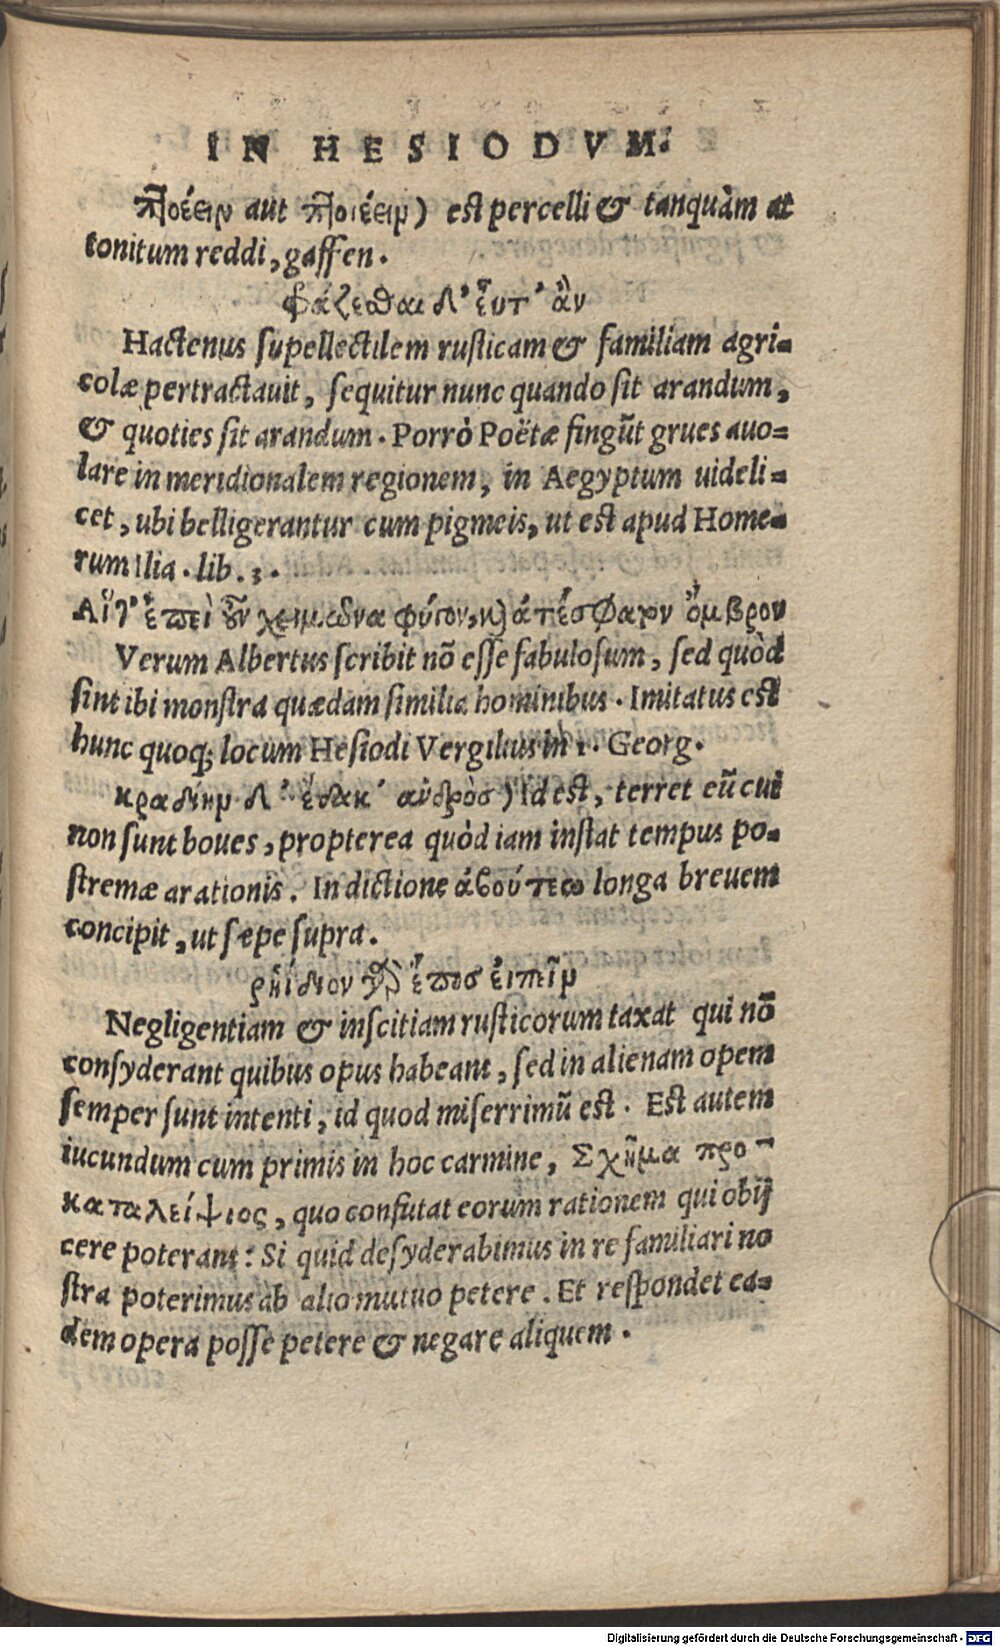 IN HESIODVM.
πτοέειν aut πτοιέειν) est percelli & tanquàm at
tonitum reddi, gaffen.
Φάζεσθαι δ' εὖτ' ἂν
Hactenus supellectilem rusticam & familiam agri-
colæ pertractauit, sequitur nunc quando sit arandum,
& quoties sit arandum. Porrò Poëtæ fingūt grues auo-
lare in meridionalem regionem, in Aegyptum uideli-
cet, ubi belligerantur cum pigmeis, ut est apud Home-
rum Ilia. lib. 3.
Αἵτ' ἐπεὶ οὖν χειμῶνα φύγον, καὶ ἀπέσφατον ὄμβρον
Verum Albertus scribit nō esse fabulosum, sed quòd
sint ibi monstra quædam similia hominibus. Imitatus est
hunc quoq; locum Hesiodi Vergilius in 1. Georg.
κραδίην δ' ἔδακ' ἀνδρὸς) id est, terret eū cui
non sunt boues, propterea quòd iam instat tempus po-
stremæ arationis. In dictione ἀβούτεω longa breuem
concipit, ut sæpe supra.
ρηίδιον γὰρ ἔπος εἰπεῖν
Negligentiam & inscitiam rusticorum taxat qui nō
consyderant quibus opus habeant, sed in alienam opem
semper sunt intenti, id quod miserrimū est. Est autem
iucundum cum primis in hoc carmine, Σχῆμα προ-
καταλείψιος, quo confutat eorum rationem qui obij
cere poterant: Si quid desyderabimus in re familiari no
stra poterimus ab alio mutuo petere. Et respondet ea-
dem opera posse petere & negare aliquem.
Digitalisierung gefördert durch die Deutsche Forschungsgemeinschaft - DFG